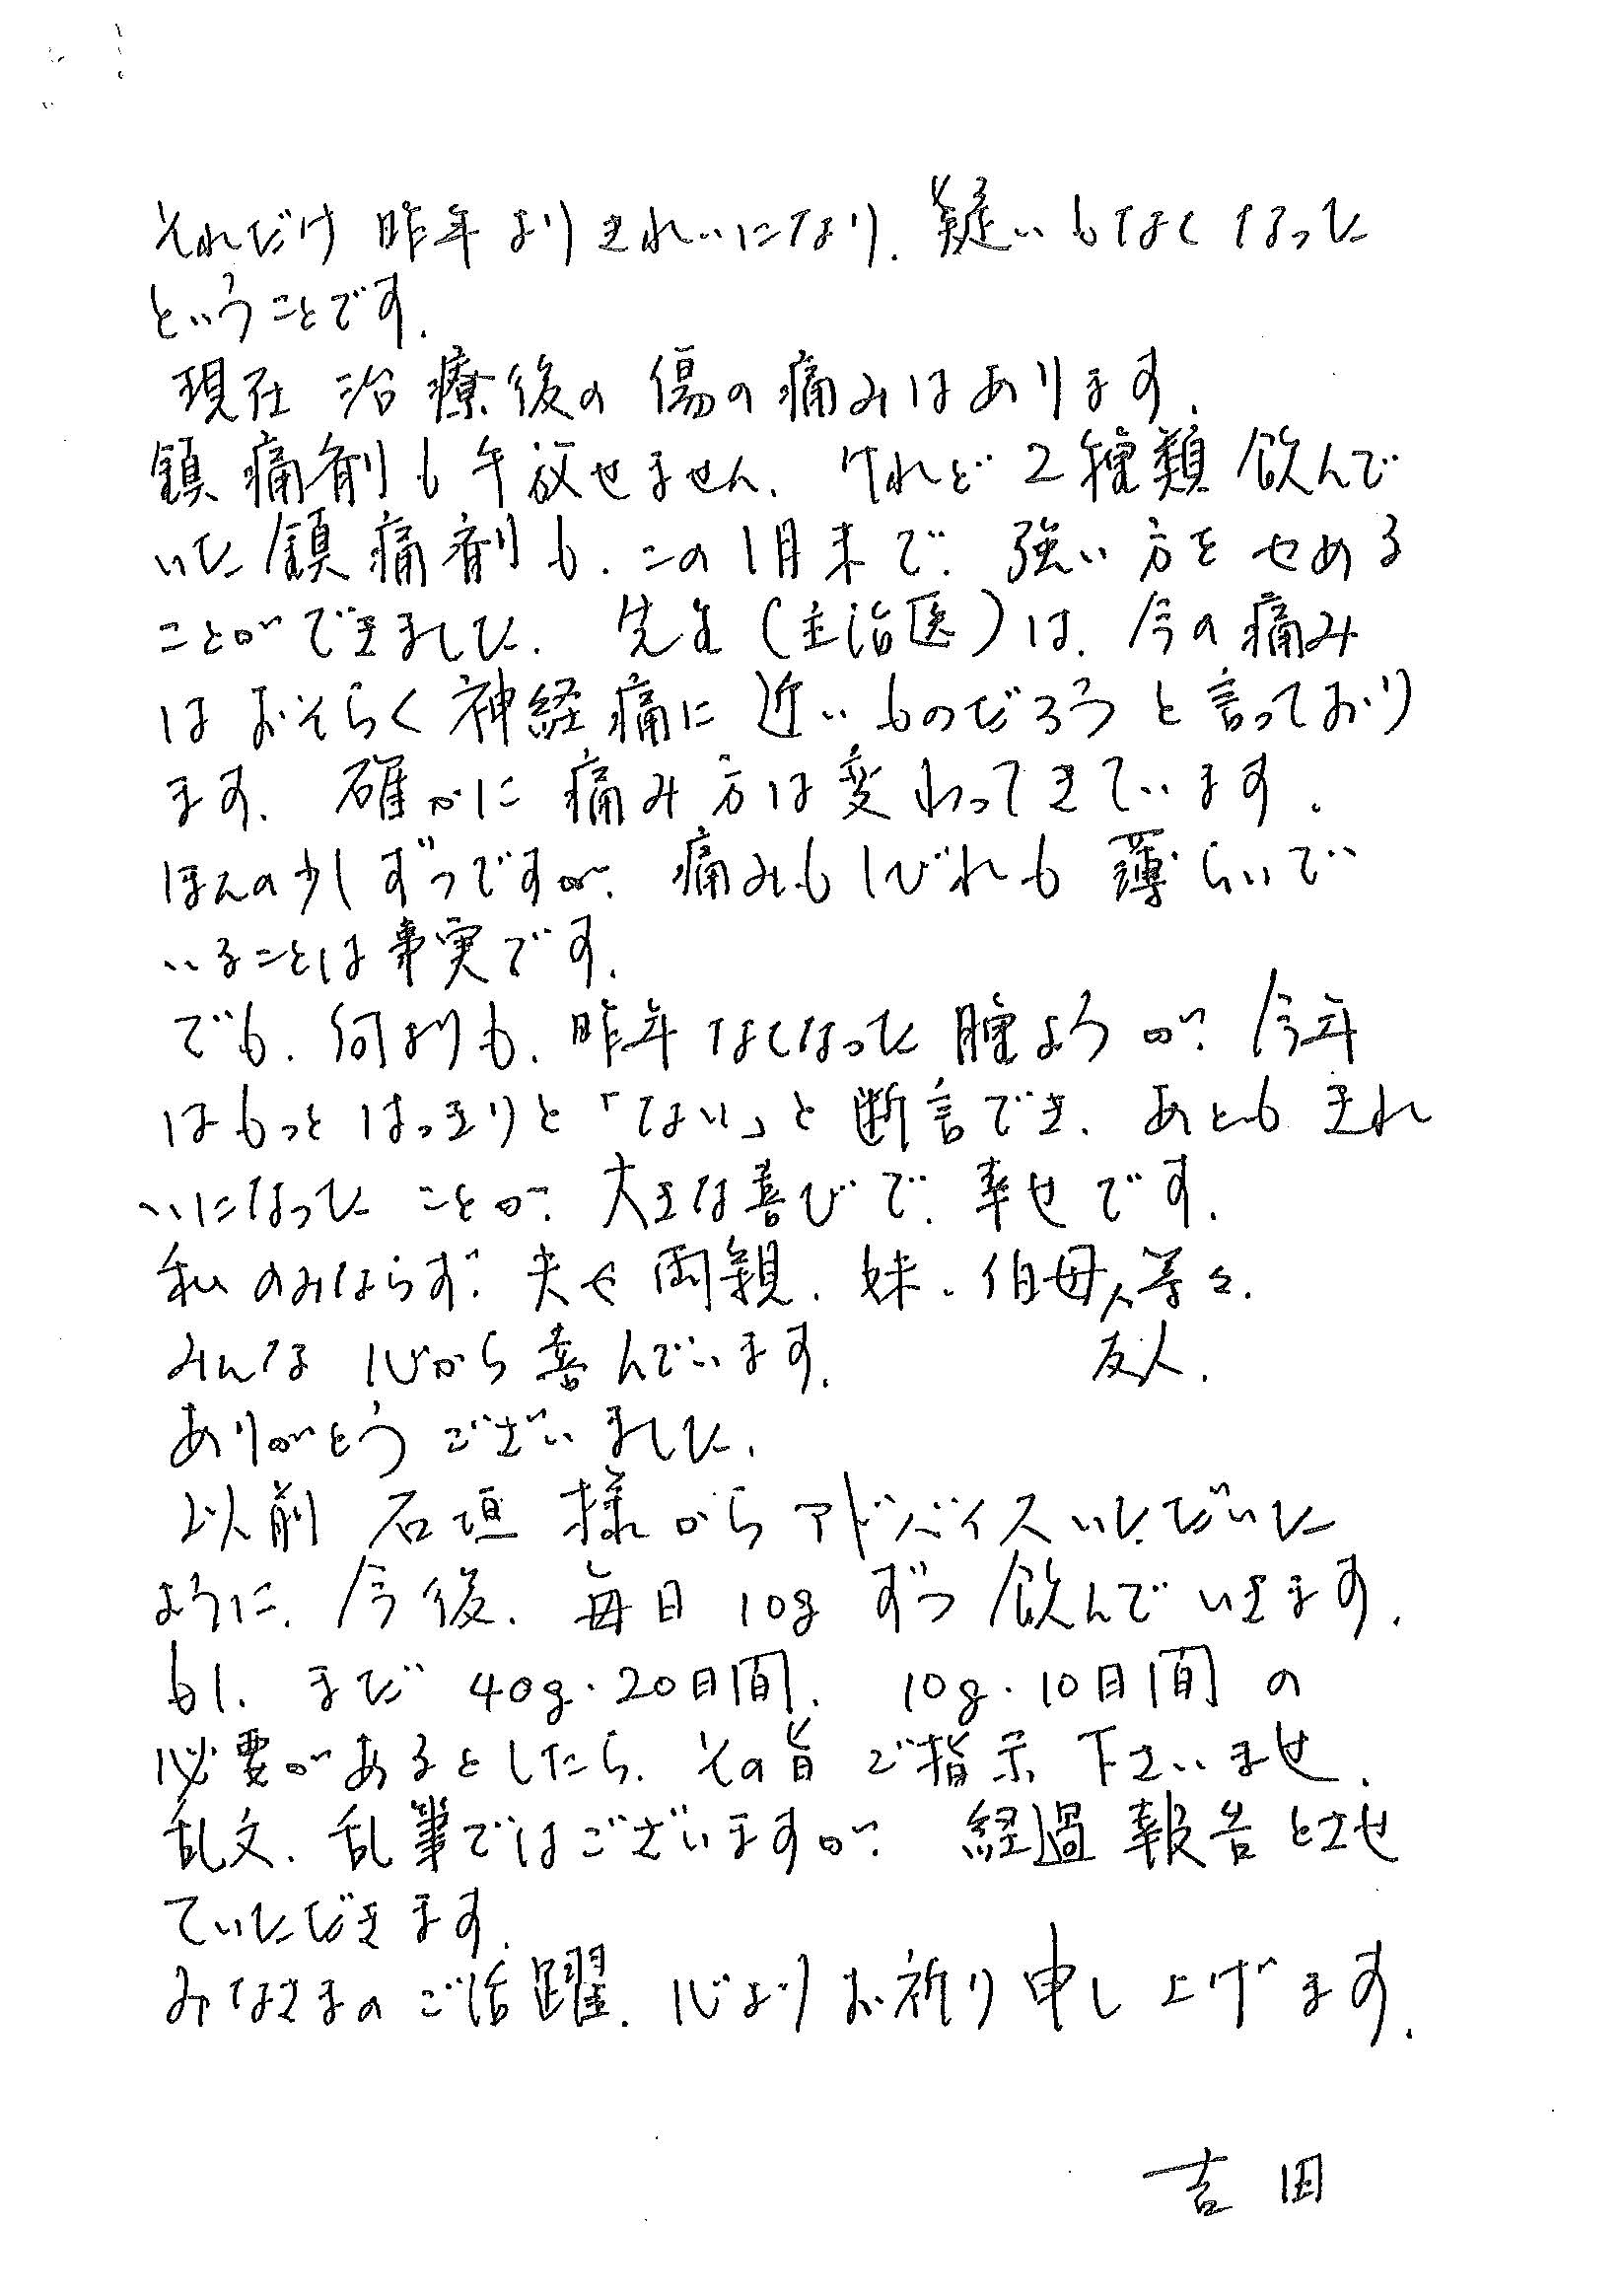 それだけ昨年よりきれいになり、疑いもなくなった
ということです。
現在治療後の傷の痛みはあります。
鎮痛剤も手放せません。けれど2種類飲んで
いた鎮痛剤も、この1月末で、強い方をやめる
ことができました。先生(主治医)は、今の痛み
はおそらく神経痛に近いものだろうと言っており
ます。確かに痛み方は変わってきています。
ほんの少しずつですが、痛みもしびれも薄らいで
いることは事実です。
でも、何よりも、昨年なくなった腫ようが、今年
はもっとはっきりと「ない」と断言でき、あともきれ
いになったことが、大きな喜びで、幸せです。
私のみならず、夫や両親、妹、伯母、友人、等々、
みんな心から喜んでいます。
ありがとうございました。
以前石垣様からアドバイスいただいた
ように、今後、毎日10gずつ飲んでいきます。
もし、まだ40g・20日間、10g・10日間の
必要があるとしたら、その旨ご指示下さいませ。
乱文、乱筆ではございますが、経過報告とさせ
ていただきます。
みなさまのご活躍、心よりお祈り申し上げます。
吉田